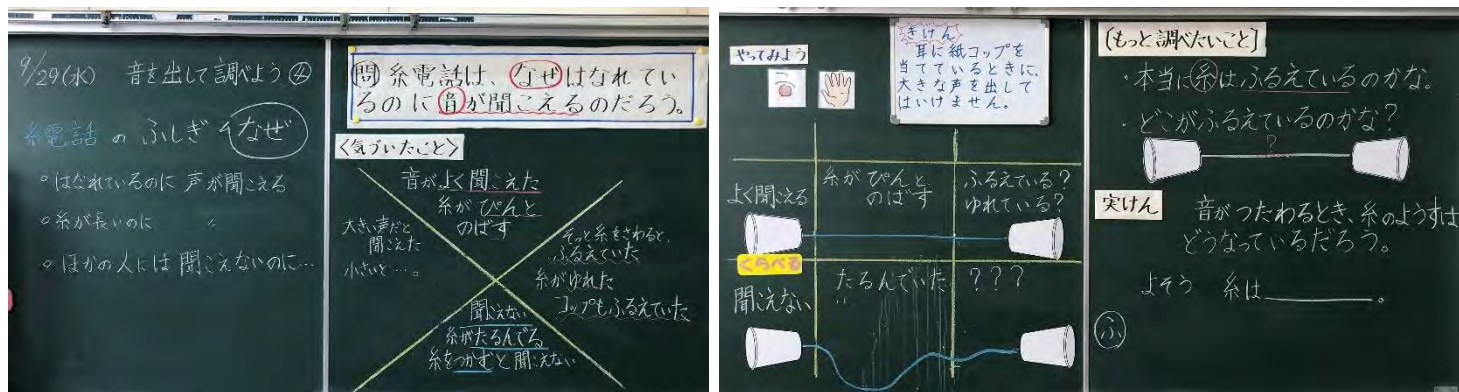 9/29(水) 音を出して調べよう④
糸電話のふしぎ なぜ
○はなれているのに声が聞こえる
○糸が長いのに 〃
○ほかの人には聞こえないのに…
問 糸電話は、なぜはなれてい
るのに音が聞こえるのだろう。
<気づいたこと>
音がよく聞こえた
糸がぴんと
のばす
大きい声だと
聞こえた
小さいと…。
そっと糸をさわると、
ふるえていた
糸がゆれた
コップもふるえていた
聞こえない
糸がたるんでる
糸をつかむと聞こえない
やってみよう
きけん
耳に紙コップを
当てているときに、
大きな声を出して
はいけません。
よく聞こえる
糸がぴんと
のばす
ふるえている?
ゆれている?
くらべる
聞こえない
たるんでいた
???
[もっと調べたいこと]
・本当に糸はふるえているのかな。
・どこがふるえているのかな?
?
実けん 音がつたわるとき、糸のようすは
どうなっているだろう。
よそう 糸は＿＿＿＿＿。
ふ